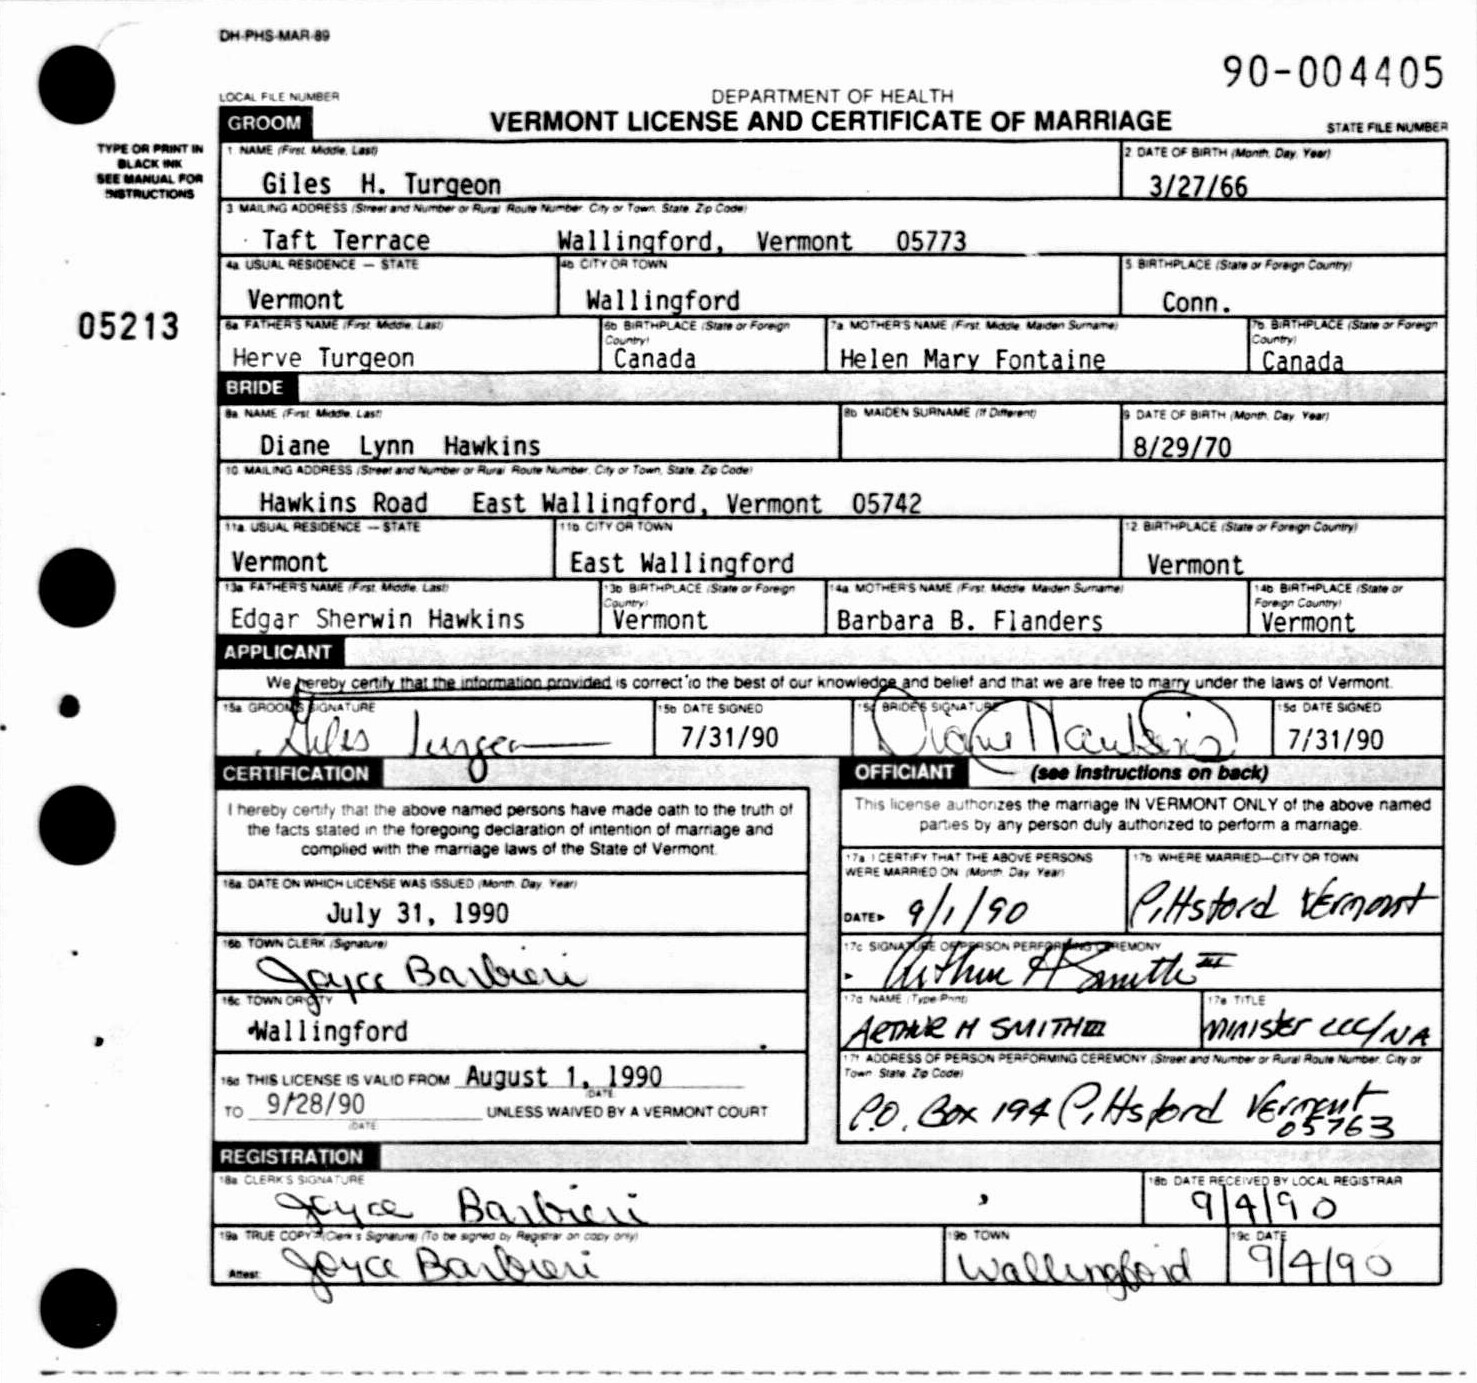 DH-PHS-MAR-89
90-004405
LOCAL FILE NUMBER
DEPARTMENT OF HEALTH
GROOM
VERMONT LICENSE AND CERTIFICATE OF MARRIAGE
STATE FILE NUMBER
TYPE OR PRINT IN
BLACK INK
SEE MANUAL FOR
INSTRUCTIONS
1 NAME (First, Middle, Last)
2 DATE OF BIRTH (Month, Day, Year)
Giles H. Turgeon
3/27/66
3 MAILING ADDRESS (Street and Number or Rural Route Number, City or Town, State, Zip Code)
Taft Terrace Wallingford, Vermont 05773
4a USUAL RESIDENCE — STATE
4b CITY OR TOWN
5 BIRTHPLACE (State or Foreign Country)
Vermont
Wallingford
Conn.
05213
6a FATHER'S NAME (First, Middle, Last)
6b BIRTHPLACE (State or Foreign Country)
7a MOTHER'S NAME (First, Middle, Maiden Surname)
7b BIRTHPLACE (State or Foreign Country)
Herve Turgeon
Canada
Helen Mary Fontaine
Canada
BRIDE
8a NAME (First, Middle, Last)
8b MAIDEN SURNAME (If Different)
9 DATE OF BIRTH (Month, Day, Year)
Diane Lynn Hawkins
8/29/70
10 MAILING ADDRESS (Street and Number or Rural Route Number, City or Town, State, Zip Code)
Hawkins Road East Wallingford, Vermont 05742
11a USUAL RESIDENCE — STATE
11b CITY OR TOWN
12 BIRTHPLACE (State or Foreign Country)
Vermont
East Wallingford
Vermont
13a FATHER'S NAME (First, Middle, Last)
13b BIRTHPLACE (State or Foreign Country)
14a MOTHER'S NAME (First, Middle, Maiden Surname)
14b BIRTHPLACE (State or Foreign Country)
Edgar Sherwin Hawkins
Vermont
Barbara B. Flanders
Vermont
APPLICANT
We hereby certify that the information provided is correct to the best of our knowledge and belief and that we are free to marry under the laws of Vermont.
15a GROOM'S SIGNATURE
15b DATE SIGNED
15c BRIDE'S SIGNATURE
15d DATE SIGNED
Giles Turgeon
7/31/90
Diane Hawkins
7/31/90
CERTIFICATION
I hereby certify that the above named persons have made oath to the truth of
the facts stated in the foregoing declaration of intention of marriage and
complied with the marriage laws of the State of Vermont.
16a DATE ON WHICH LICENSE WAS ISSUED (Month, Day, Year)
July 31, 1990
16b TOWN CLERK (Signature)
Joyce Barbieri
16c TOWN OR CITY
Wallingford
16d THIS LICENSE IS VALID FROM August 1, 1990
(DATE)
TO 9/28/90 UNLESS WAIVED BY A VERMONT COURT
(DATE)
OFFICIANT (see instructions on back)
This license authorizes the marriage IN VERMONT ONLY of the above named
parties by any person duly authorized to perform a marriage.
17a I CERTIFY THAT THE ABOVE PERSONS
WERE MARRIED ON (Month, Day, Year)
DATE▸ 9/1/90
17b WHERE MARRIED—CITY OR TOWN
Pittsford Vermont
17c SIGNATURE OF PERSON PERFORMING CEREMONY
Arthur H Smith III
17d NAME (Type/Print)
17e TITLE
ARTHUR H SMITH III
MINISTER CCC/NA
17f ADDRESS OF PERSON PERFORMING CEREMONY (Street and Number or Rural Route Number, City or
Town, State, Zip Code)
P.O. Box 194 Pittsford Vermont
05763
REGISTRATION
18a CLERK'S SIGNATURE
18b DATE RECEIVED BY LOCAL REGISTRAR
Joyce Barbieri
9/4/90
19a TRUE COPY (Clerk's Signature) (To be signed by Registrar on copy only)
19b TOWN
19c DATE
Attest: Joyce Barbieri
Wallingford
9/4/90